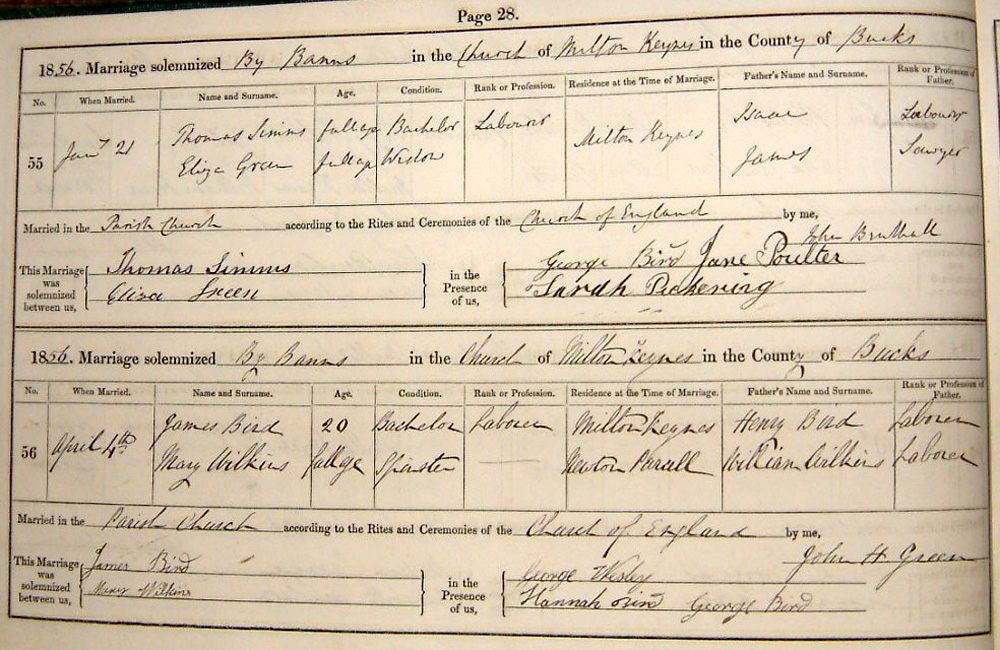 Page 28.
1856. Marriage solemnized By Banns in the Church of Milton Keynes in the County of Bucks
No. When Married. Name and Surname. Age. Condition. Rank or Profession. Residence at the Time of Marriage. Father's Name and Surname. Rank or Profession of Father.
55 Jany 21 Thomas Simms full age Bachelor Labourer Milton Keynes Isaac Labourer
Eliza Green full age Widow James Sawyer
Married in the Parish Church according to the Rites and Ceremonies of the Church of England by me,
John Bruthall
This Marriage was solemnized between us, Thomas Simms in the Presence of us, George Bird Jane Poulter
Eliza Green Sarah Pickening
1856. Marriage solemnized By Banns in the Church of Milton Keynes in the County of Bucks
No. When Married. Name and Surname. Age. Condition. Rank or Profession. Residence at the Time of Marriage. Father's Name and Surname. Rank or Profession of Father.
56 April 4th James Bird 20 Bachelor Laborer Milton Keynes Henry Bird Laborer
Mary Wilkins full age Spinster Newton Purcell William Wilkins Laborer
Married in the Parish Church according to the Rites and Ceremonies of the Church of England by me,
John H Green
This Marriage was solemnized between us, James Bird in the Presence of us, George Wesley
Mary Wilkins Hannah Bird George Bird